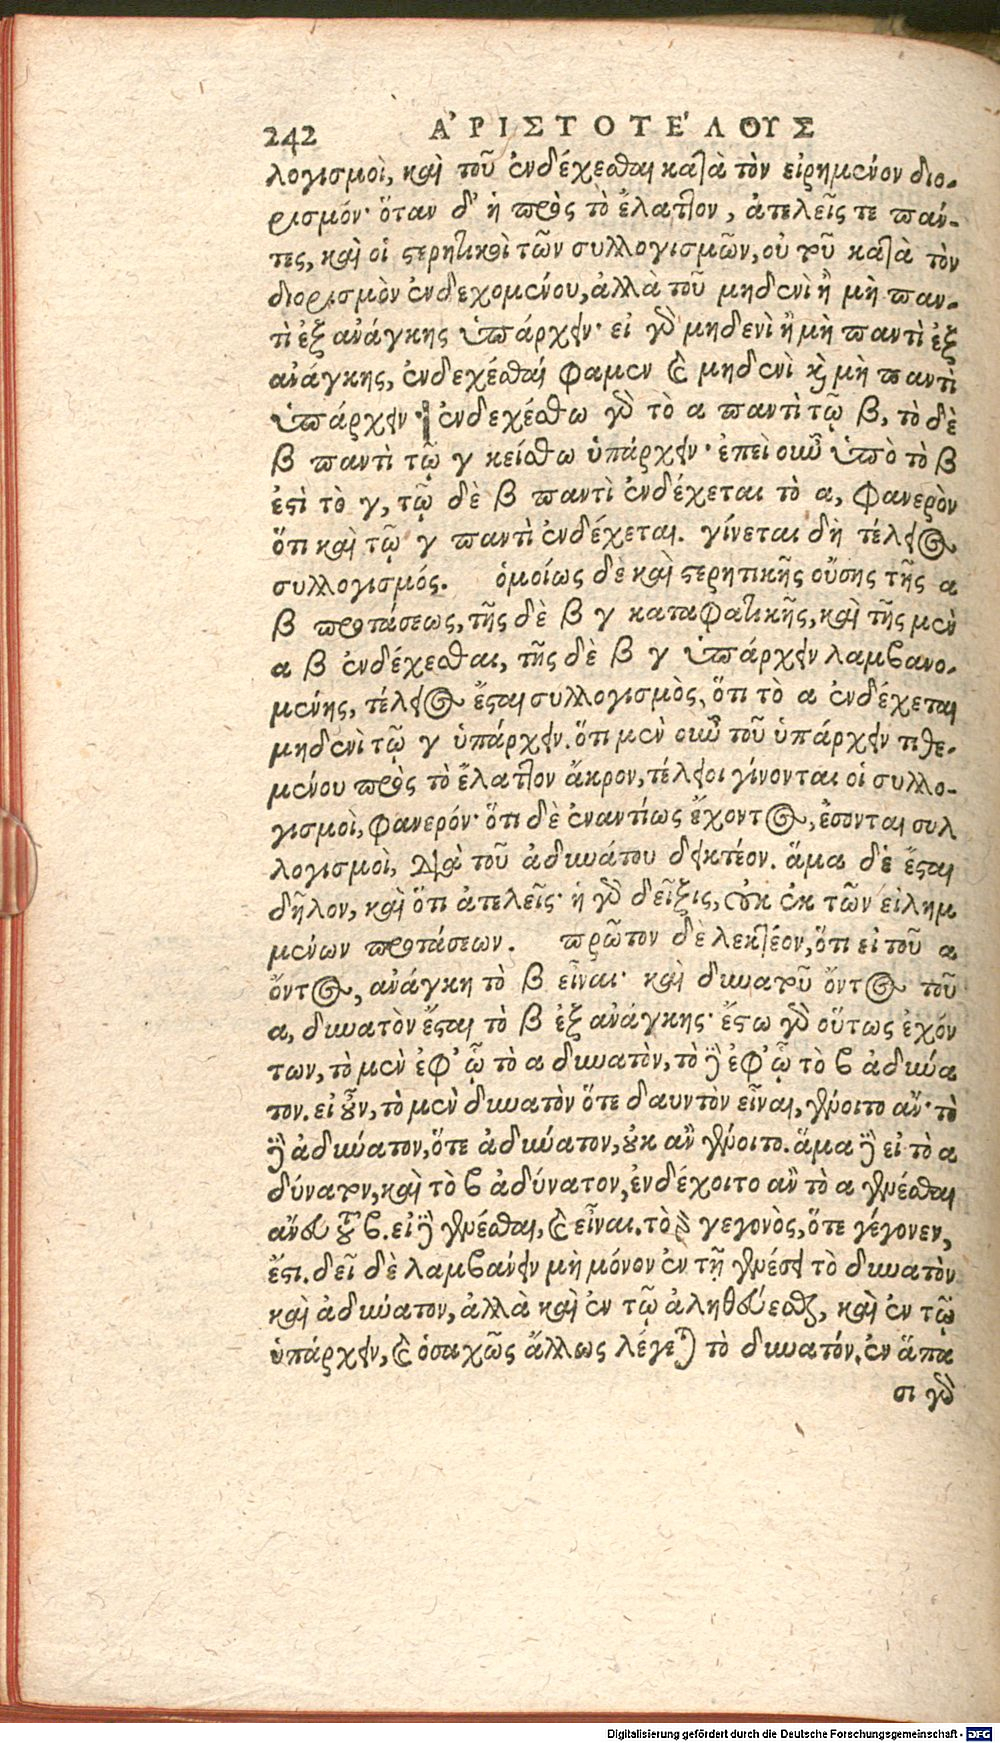 242 ἈΡΙΣΤΟΤΈΛΟΥΣ
λογισμοὶ, καὶ τοῦ ἐνδέχεσθαι κατὰ τὸν εἰρημένον διο-
ρισμόν· ὅταν δ’ ἡ πρὸς τὸ ἔλαττον, ἀτελεῖς τε πάν-
τες, καὶ οἱ στερητικοὶ τῶν συλλογισμῶν, οὐ τοῦ κατὰ τὸν
διορισμὸν ἐνδεχομένου, ἀλλὰ τοῦ μηδενὶ ἢ μὴ παν-
τὶ ἐξ ἀνάγκης ὑπάρχειν· εἰ γὰρ μηδενὶ ἢ μὴ παντὶ ἐξ
ἀνάγκης, ἐνδεχέσθαί φαμεν καὶ μηδενὶ καὶ μὴ παντὶ
ὑπάρχειν· ἐνδεχέσθω γὰρ τὸ α παντὶ τῷ β, τὸ δὲ
β παντὶ τῷ γ κείσθω ὑπάρχειν· ἐπεὶ οὖν ὑπὸ τὸ β
ἐστὶ τὸ γ, τῷ δὲ β παντὶ ἐνδέχεται τὸ α, φανερὸν
ὅτι καὶ τῷ γ παντὶ ἐνδέχεται. γίνεται δὴ τέλειος
συλλογισμός. ὁμοίως δὲ καὶ στερητικῆς οὔσης τῆς α
β προτάσεως, τῆς δὲ β γ καταφατικῆς, καὶ τῆς μὲν
α β ἐνδέχεσθαι, τῆς δὲ β γ ὑπάρχειν λαμβανο-
μένης, τέλειος ἔσται συλλογισμὸς, ὅτι τὸ α ἐνδέχεται
μηδενὶ τῷ γ ὑπάρχειν. ὅτι μὲν οὖν τοῦ ὑπάρχειν τιθε-
μένου πρὸς τὸ ἔλαττον ἄκρον, τέλειοι γίνονται οἱ συλλο-
γισμοὶ, φανερόν· ὅτι δὲ ἐναντίως ἔχοντος, ἔσονται συλ
λογισμοὶ, διὰ τοῦ ἀδυνάτου δεικτέον. ἅμα δὲ ἔσται
δῆλον, καὶ ὅτι ἀτελεῖς· ἡ γὰρ δεῖξις, οὐκ ἐκ τῶν εἰλημ
μένων προτάσεων. πρῶτον δὲ λεκτέον, ὅτι εἰ τοῦ α
ὄντος, ἀνάγκη τὸ β εἶναι· καὶ δυνατοῦ ὄντος τοῦ
α, δυνατὸν ἔσται τὸ β ἐξ ἀνάγκης· ἔστω γὰρ οὕτως ἐχόν
των, τὸ μὲν ἐφ’ ᾧ τὸ α δυνατὸν, τὸ δὲ ἐφ’ ᾧ τὸ β ἀδύνα
τον. εἰ οὖν, τὸ μὲν δυνατὸν ὅτε δαυντὸν εἶναι, γένοιτο ἄν· τὸ
δὲ ἀδύνατον, ὅτε ἀδύνατον, οὐκ ἂν γένοιτο. ἅμα δὲ εἰ τὸ α
δύνατον, καὶ τὸ β ἀδύνατον, ἐνδέχοιτο ἂν τὸ α γενέσθαι
ἄνευ τοῦ β. εἰ δὲ γενέσθαι, καὶ εἶναι. τὸ γὰρ γεγονὸς, ὅτε γέγονεν,
ἔστι. δεῖ δὲ λαμβάνειν μὴ μόνον ἐν τῇ γενέσει τὸ δυνατὸν
καὶ ἀδύνατον, ἀλλὰ καὶ ἐν τῷ ἀληθεύεσθαι, καὶ ἐν τῷ
ὑπάρχειν, καὶ ὁσαχῶς ἄλλως λέγεται τὸ δυνατόν. ἐν ἅπα
σι γὰρ
Digitalisierung gefördert durch die Deutsche Forschungsgemeinschaft - DFG